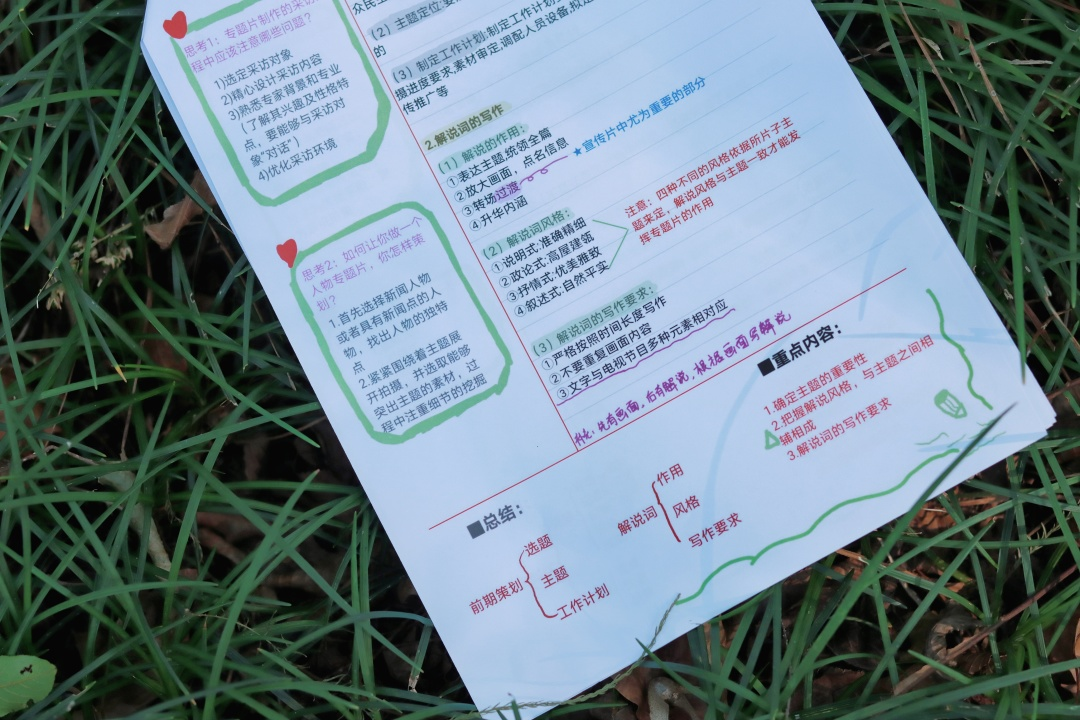 思考1：专题片制作的采访
程中应该注意哪些问题？
1)选定采访对象
2)精心设计采访内容
3)熟悉专家背景和专业
（了解其兴趣及性格特
点，要能够与采访对
象“对话”）
4)优化采访环境
思考2：如何让你做一个
人物专题片，你怎样策
划？
1.首先选择新闻人物
或者具有新闻点的人
物，找出人物的独特
点
2.紧紧围绕着主题展
开拍摄，并选取能够
突出主题的素材，过
程中注重细节的挖掘
（2）主题定位
的
（3）制定工作计划:制定工作计划
摄进度要求,素材审定,调配人员设备,拟定
传推广等
2.解说词的写作
（1）解说的作用：
①表达主题,统领全篇
②放大画面，点名信息
③转场过渡
④升华内涵
★宣传片中尤为重要的部分
（2）解说词风格：
①说明式:准确精细
②政论式:高屋建瓴
③抒情式:优美雅致
④叙述式:自然平实
注意：四种不同的风格依据所片子主
题来定，解说风格与主题一致才能发
挥专题片的作用
（3）解说词的写作要求：
①严格按照时间长度写作
②不要重复画面内容
③文字与电视节目多种元素相对应
先有画面，后有解说，根据画面写解说
■总结：
前期策划
选题
主题
工作计划
解说词
作用
风格
写作要求
■重点内容：
1.确定主题的重要性
2.把握解说风格，与主题之间相
辅相成
3.解说词的写作要求